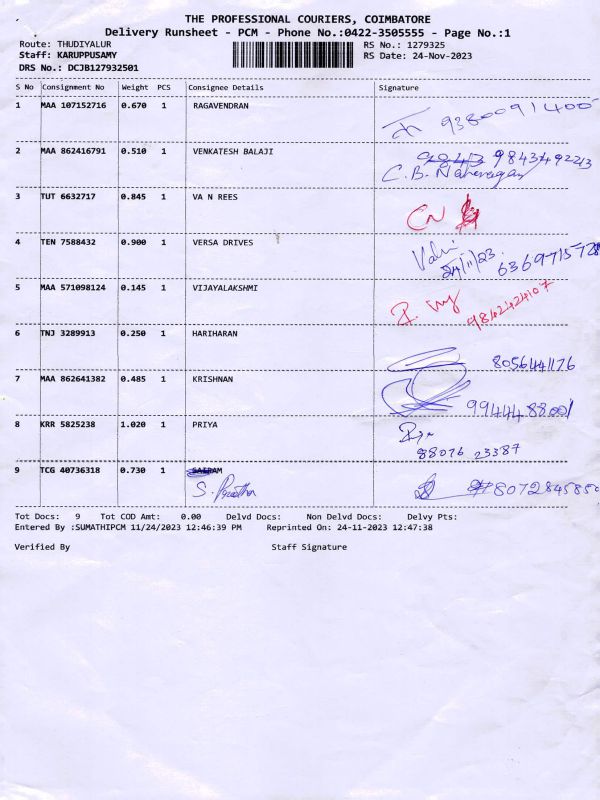 THE PROFESSIONAL COURIERS, COIMBATORE
Delivery Runsheet - PCM - Phone No.:0422-3505555 - Page No.:1
Route: THUDIYALUR RS No.: 1279325
Staff: KARUPPUSAMY RS Date: 24-Nov-2023
DRS No.: DCJB127932501
S No Consignment No Weight PCS Consignee Details Signature
1 MAA 107152716 0.670 1 RAGAVENDRAN 9380091400
2 MAA 862416791 0.510 1 VENKATESH BALAJI 9843492213
C.B.
3 TUT 6632717 0.845 1 VA N REES
4 TEN 7588432 0.900 1 VERSA DRIVES
24/11/23 6369715728
5 MAA 571098124 0.145 1 VIJAYALAKSHMI
9842424107
6 TNJ 3289913 0.250 1 HARIHARAN
8056441176
7 MAA 862641382 0.485 1 KRISHNAN
9944488001
8 KRR 5825238 1.020 1 PRIYA
88076 23387
9 TCG 40736318 0.730 1
S. 8072845850
Tot Docs: 9 Tot COD Amt: 0.00 Delvd Docs: Non Delvd Docs: Delvy Pts:
Entered By :SUMATHIPCM 11/24/2023 12:46:39 PM Reprinted On: 24-11-2023 12:47:38
Verified By Staff Signature